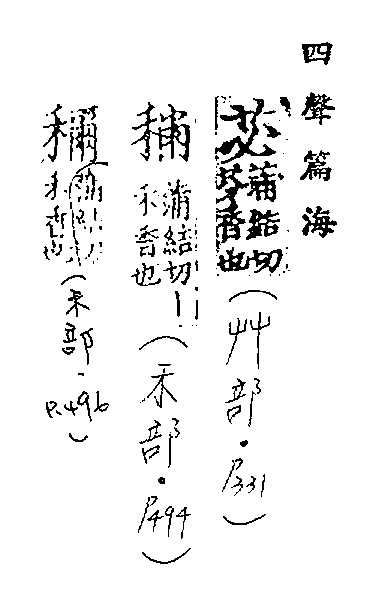 四聲篇海
苾 蒲結切
香也
（艸部．P331）
蒲結切
禾香也
（禾部．P494）
禾香也
（禾部．P.496）